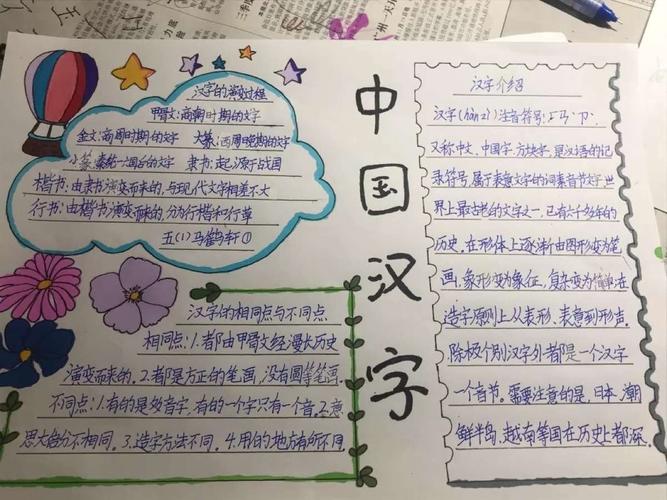 汉字的演变过程
甲骨文:商朝时期的文字
金文:商周时期的文字 大篆:西周晚期的文字
小篆:秦统一六国后的文字 隶书:起源于战国
楷书:由隶书演变而来的,与现代文字相差不大
行书:由楷书演变而来的,分为行楷和行草
五(1)马鹤轩①
中国汉字
汉字介绍
汉字(hàn zì)注音符号:ㄏㄢˋㄗˋ
又称中文、中国字、方块字,是汉语的记
录符号,属于表意文字的词素音节文字,世
界上最古老的文字之一,已有六千多年的
历史。在形体上逐渐由图形变为笔
画,象形变为象征,复杂变为简单;在
造字原则上从表形、表意到形声。
除极个别汉字外都是一个汉字
一个音节。需要注意的是,日本、潮
鲜半岛、越南等国在历史上都深
汉字的相同点与不同点
相同点:1.都由甲骨文经漫长历史
演变而来的。2.都是方正的笔画,没有圆等笔画
不同点:1.有的是多音字,有的一个字只有一个音。2.意
思大部分不相同。3.造字方法不同。4.用的地方有所不同